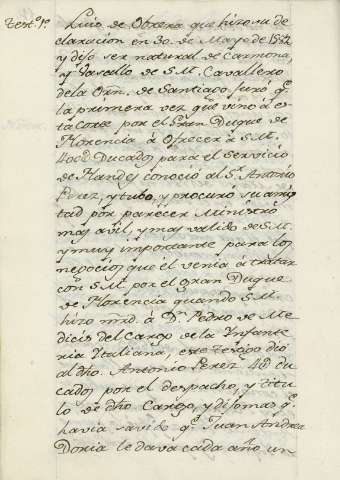 Test.º 1.º
Luis de Obrera que hizo su de
claracion en 30 de Mayo de 1582
y dijo ser natural de Carmona,
y Vasallo de S.M. Cavallero
de la Orn. de Santiago juró q.ᵉ
la primera vez que vino à es
ta Corte por el Gran Duque de
Florencia à Ofrecer à S.M.
Ducados para el Servicio
de Flandes conoció al S.ʳ Antonio
Perez, y tubo, y procuró su amis
tad por parecer Ministro
mas avil, y mas valido de S.M.
y muy importante para los
negocios que èl venia à tratar
con S.M. por el gran Duque
de Florencia quando S.M.
hizo mrd. à D.ⁿ Pedro de Me
dicis del Cargo de la Infante
ria Italiana, este testigo dió
al dho. Antonio Perez 4@ du
cados por el despacho, y titu
lo de dho Cargo, y dijo mas q.ᵉ
havia savido q.ᵉ Juan Andrea
Doria le dava cada año un